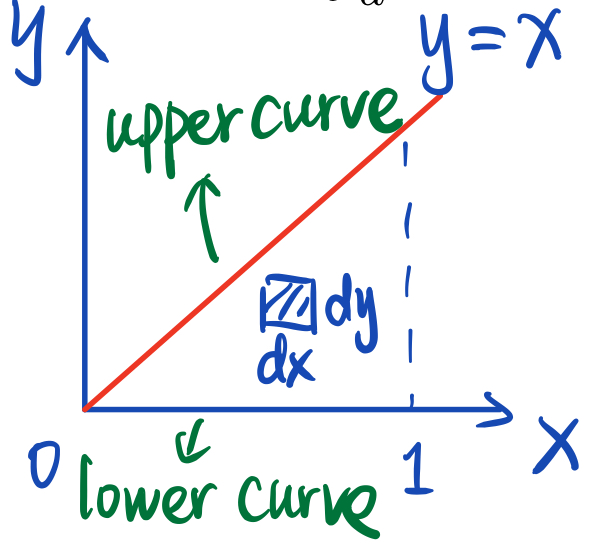 y
y = x
upper curve
dy
dx
0
1
x
lower curve